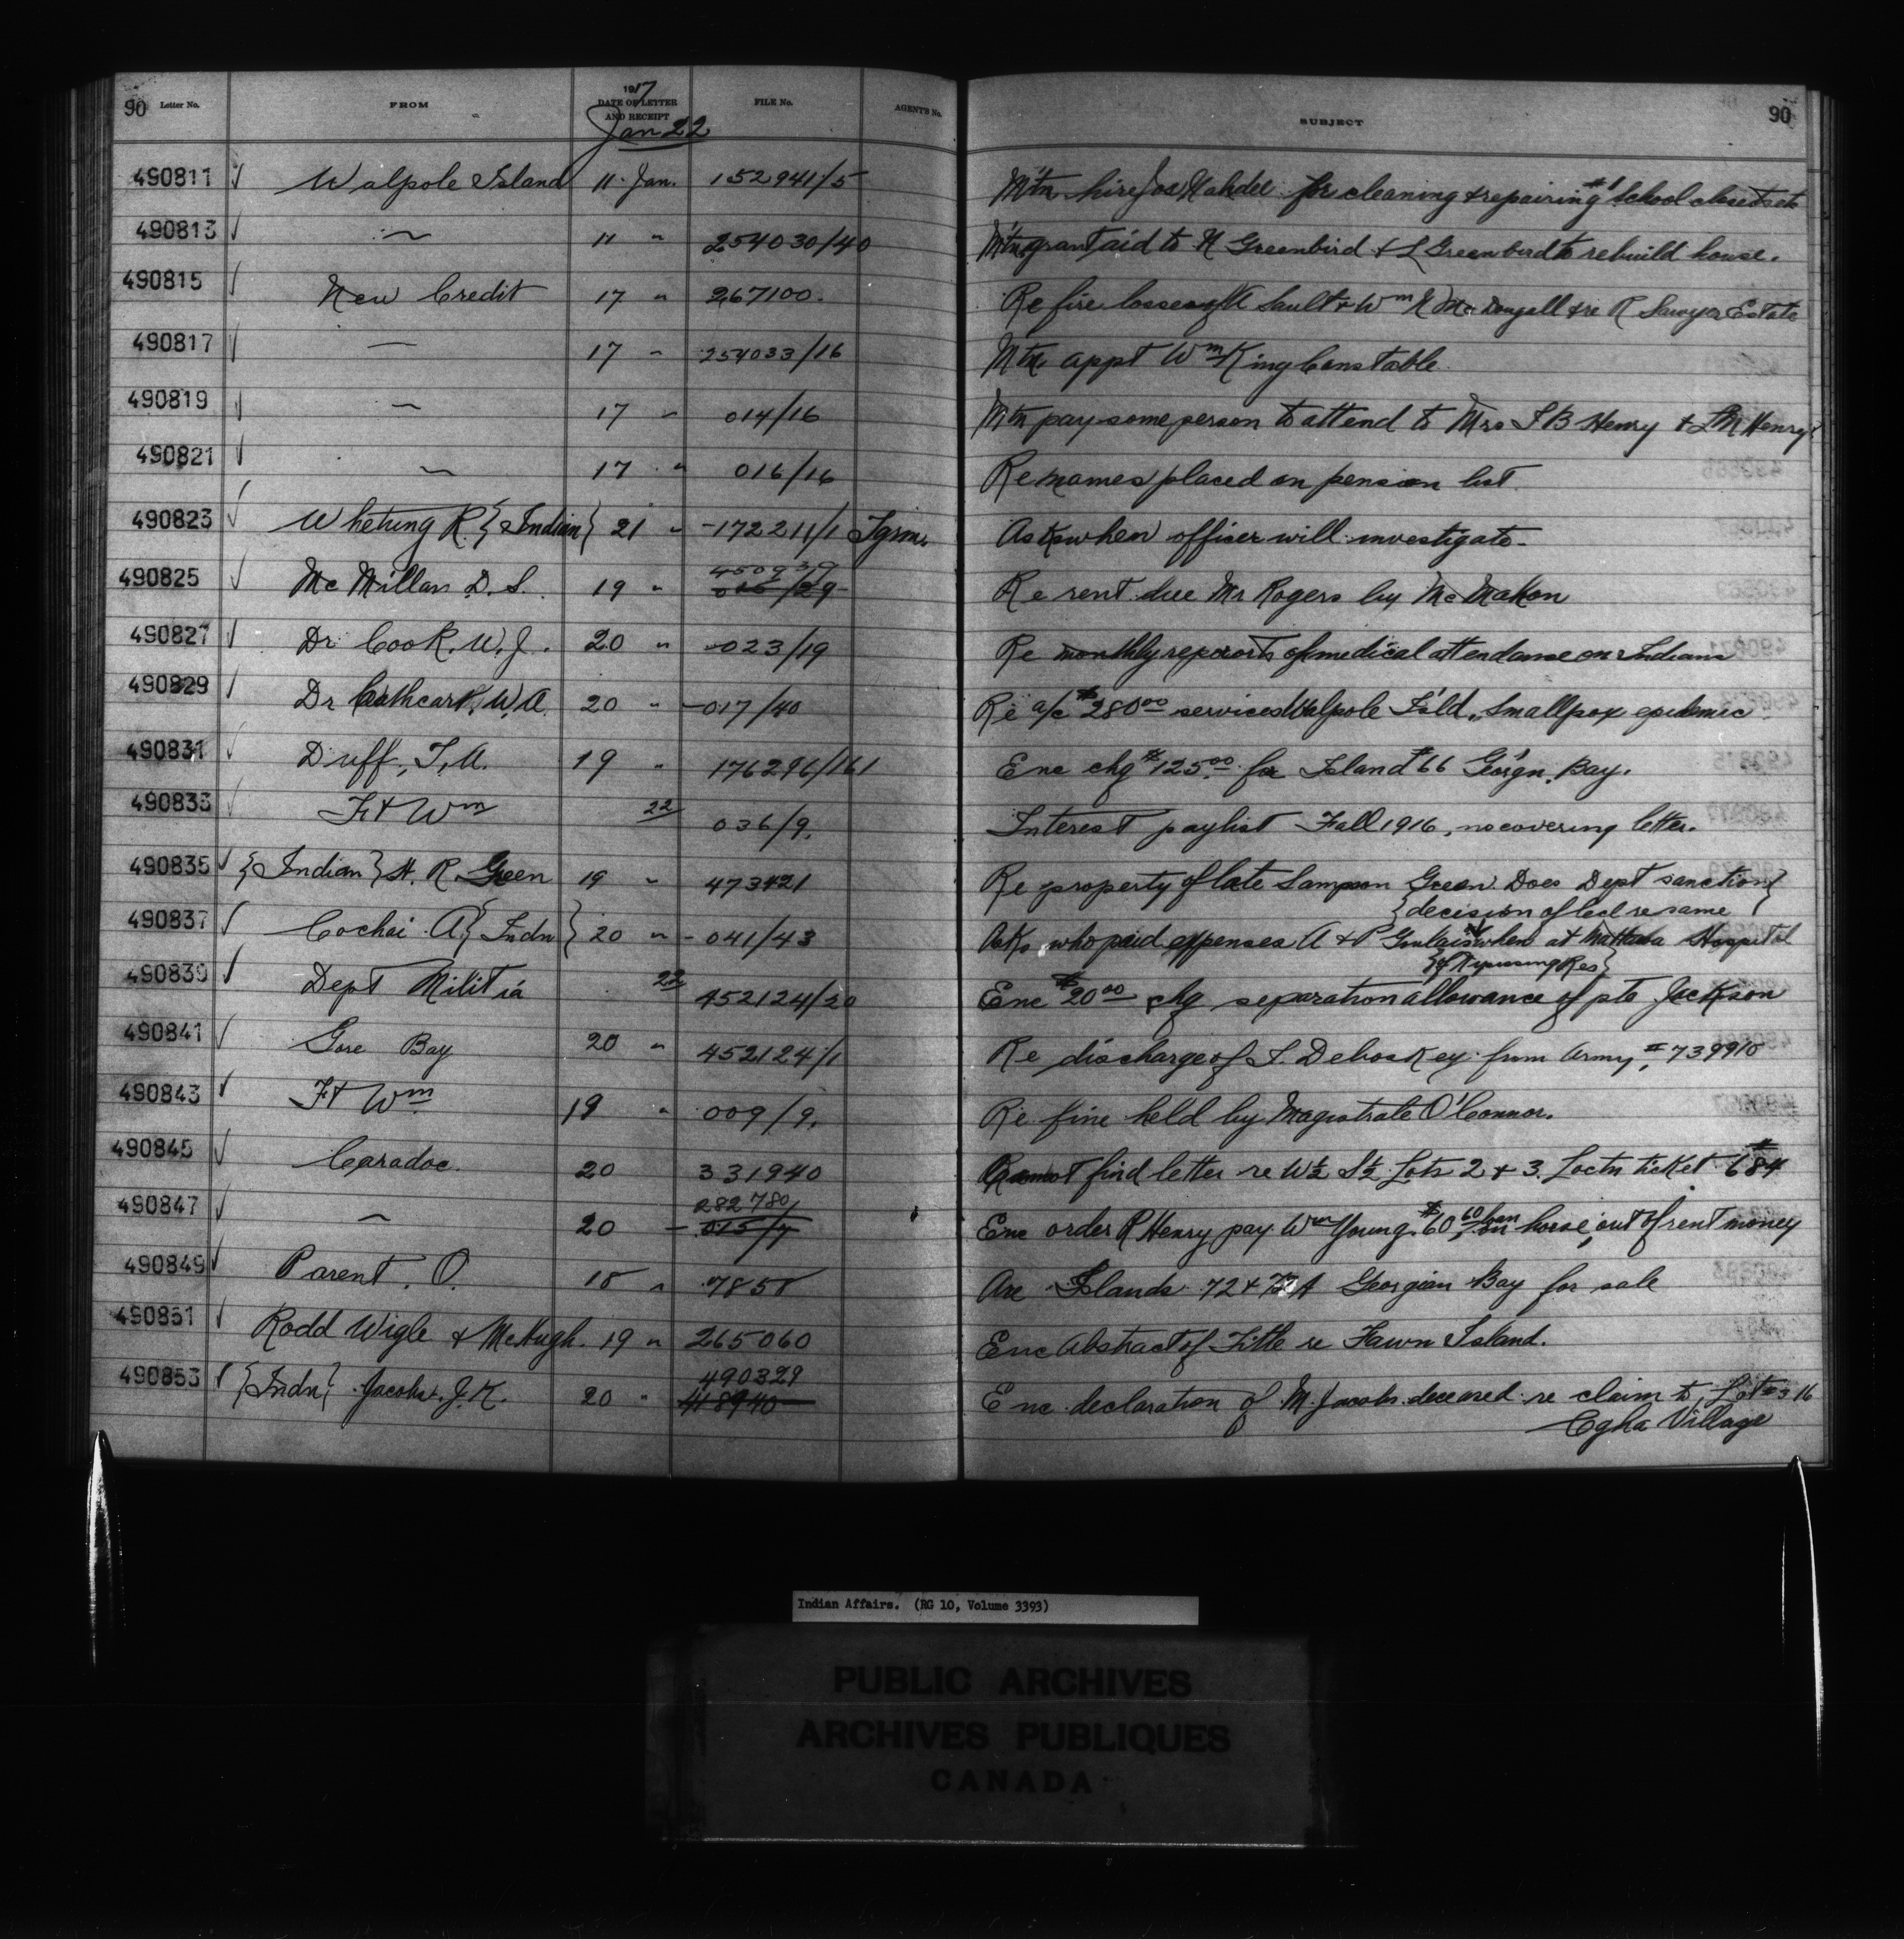 90 Letter No. FROM 1917 DATE OF LETTER AND RECEIPT FILE No. AGENTS No. SUBJECT 90
Jan 22
490811 Walpole Island 11 Jan. 152941/5 Mtn hire Jos for cleaning & repairing #1 School closets etc
490813 " 11 " 254030/40 Mtn grant aid to N Greenbird & L Greenbird to rebuild house.
490815 New Credit 17 " 267100. Re fire losses of A Sault & Wm N McDougall & re R Sawyer Estate
490817 " 17 " 254033/16 Mtn. appt Wm King Constable
490819 " 17 " 014/16 Mtn pay some person to attend to Mrs I B Henry & L M Henry
490821 " 17 " 016/16 Re names placed on pension list
490823 Whetung R. {Indian} 21 " -172211/1 Tgrm. Asks when officer will investigate-
490825 McMillan D. S. 19 " 450939 015/29 Re rent due Mr Rogers by McMahon
490827 Dr Cook. W. J. 20 " -023/19 Re monthly reports of medical attendance on Indians
490829 Dr Cathcart, W. A. 20 " -017/40 Re a/c $280.00 services Walpole Is'ld, Smallpox epidemic
490831 Duff, T. A. 19 " 176296/161 Enc chq $125.00 for Island #66 Georgn. Bay.
490833 Ft Wm 22 036/9. Interest paylist Fall 1916, no covering letter.
490835 {Indian} H. R Green 19 " 473421 Re property of late Sampson Green. Does Dept sanction}
{decision of Ccl re same
490837 Cochai A {Indn} 20 " - 041/43 Asks who paid expenses A & P when at Mattawa Hospital
{of Res}
490839 Dept Militia 22 452124/20 Enc $20.00 chq separation allowance of pte Jackson
490841 Gore Bay 20 " 452124/1 Re discharge of S. Deboskey from Army, #739910
490843 Ft Wm 19 " 009/9. Re fine held by Magistrate O'Connor.
490845 Caradoc. 20 331940 Cannot find letter re W½ S½ Lots 2 & 3. Loctn ticket #684
490847 " 20 - 282780/ 015/7 Enc order R Henry pay Wm Young $60.60 loan on horse, out of rent money
490849 Parent. O. 18 " 7858 Are Islands 72 & 72A Georgian Bay for sale
490851 Rodd Wigle & McHugh. 19 " 265060 Enc Abstract of Title re Fawn Island.
490853 {Indn} Jacobs. J. K. 20 " 490329 418940 Enc declaration of M. Jacobs deceased re claim to, Lot #316
Cgha Village
Indian Affairs. (RG 10, Volume 3393)
PUBLIC ARCHIVES
ARCHIVES PUBLIQUES
CANADA